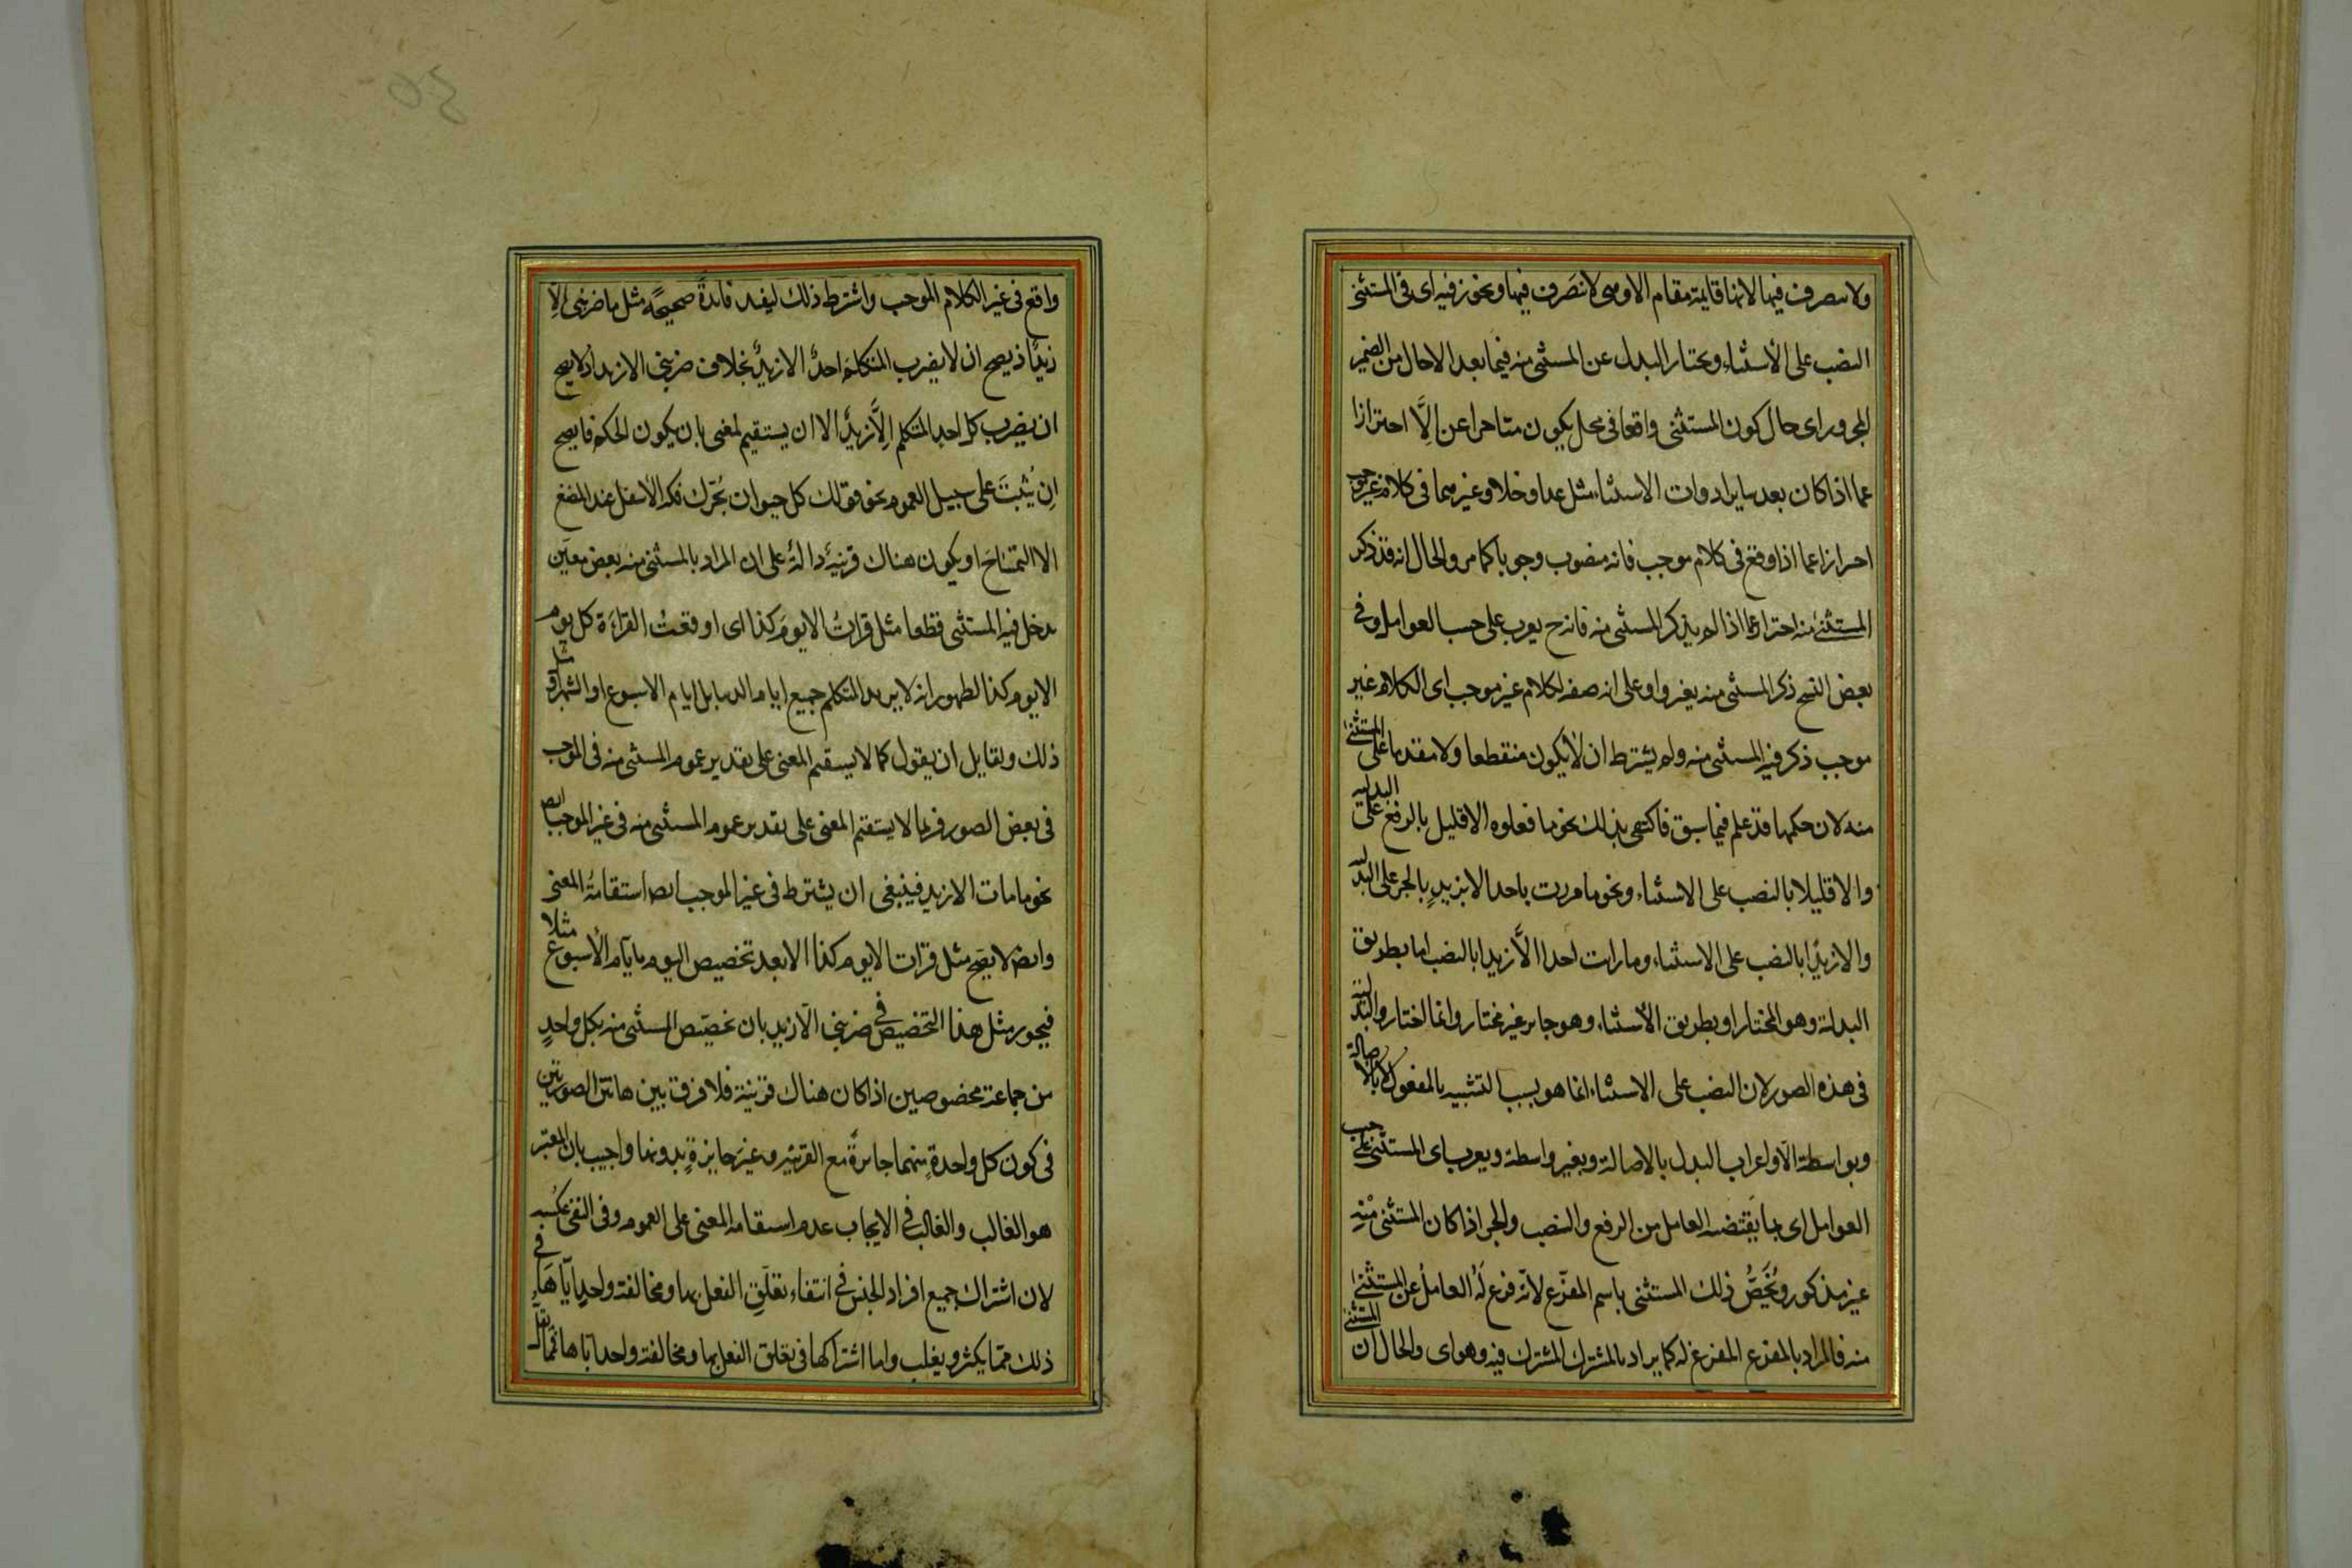 ولا يتصرف فيها لانها قايمة مقام الا وهى لا تصرف فيها ويجوز فيه اى فى المستثنى
النصب على الأستثناء ويختار البدل عن المستثنى منه فيما بعد الا حال من الضمير
المجرور اى حال كون المستثنى واقعا فى محل يكون متاخرا عن إلَّا احترازا
عما اذا كان بعد ساير ادوات الاستثناء مثل عدا وخلا وغيرهما فى كلام غير موجب
احترازا عما اذا وقع فى كلام موجب فانه منصوب وجوبا كما مر والحال انه قد ذكر
المستثنى منه احترازا عما اذا لم يذكر المستثنى منه فانه ح يعرب على حسب العوامل وفى
بعض النسخ ذكر المستثنى منه بغير واو على انه صفه لكلام غير موجب اى الكلام غير
موجب ذكر فيه المستثنى منه ولم يشترط ان لا يكون منقطعا ولا مقدما على المستثنى
منه لان حكمها قد علم فيما سبق فاكتفى بذلك نحو ما فعلوه الا قليل بالرفع على البدلية
والا قليلا بالنصب على الاستثناء ونحو ما مررت باحد الا بزيدٍ بالجر على البدلية
والا زيدًا بالنصب على الاستثناء وما رايت احدا الَّا زيدا بالنصب اما بطريق
البدلية وهو المختار او بطريق الأستثناء وهو جايز غير مختار وانما اختاروا البدلية
فى هذه الصور لان النصب على الاستثناء انما هو بسبب التشبيه بالمفعول لا بالاصالة
وبواسطة الّا واعراب البدل بالاصالة وبغير واسطة ويعرب اى المستثنى على حسب
العوامل اى بما يقتضيه العامل من الرفع والنصب والجر اذا كان المستثنى منه
غير مذكور ويُخَصُّ ذلك المستثنى باسم المفرّغ لانّه فرغ لَهُ العاملُ عن المستثنى
منه فالمراد بالمفرغ المفرغ له كما يراد بالمشترك المشترك فيه وهو اى والحال ان المستثنى
واقع فى غير الكلام الموجب واشترط ذلك ليفيد فايدةً صحيحةً مثل ما ضربنى اِلّا
زيدٌ اذ يصح ان لا يضرب المتكلمَ احدٌ الا زيدٌ بخلاف ضربنى الا زيد اذ لا يصح
ان يضرب كل احد المتكلم اِلَّا زيدٌ الا ان يستقيم المعنى بان يكون الحكم مما يصح
ان يُثبتَ على سبيل العموم نحو قولك كل حيوان يُحَرِّك فكه الأسفل عند المضغ
الا التمساحَ او يكون هناك قرينةٌ دالةٌ على ان المراد بالمستثنى منه بعض معين
يدخل فيه المستثنى قطعا مثل قراتُ الا يومَ كذا اى اوقعتُ القراءة كل يوم
الا يوم كذا لظهور انه لا يريد المتكلم جميع ايام الدنيا بل ايام الاسبوع او الشهر او مثل
ذلك ولقايل ان يقول كما لا يستقيم المعنى على تقدير عموم المستثنى منه فى الموجب
فى بعض الصور فربما لا يستقيم المعنى على تقدير عموم المستثنى منه فى غير الموجب ايضا
نحو ما مات الا زيد فينبغى ان يشترط فى غير الموجب ايضا استقامةُ المعنى
وايضا لا يصح مثل قرات الا يوم كذا الا بعد تخصيص اليوم بايّام الأسبوع مثلا
فيجوز مثل هذا التخصيص فى ضربنى الّا زيد بان يخصّص المستثنى منه بكل واحدٍ
من جماعة مخصوصين اذا كان هناك قرينة فلا فرق بين هاتين الصورتين
فى كون كل واحدةٍ منهما جايزةً مع القرينه وغيرَ جايزةٍ بدونها واجيب بان المعتبر
هو الغالب والغالب فى الايجاب عدم استقامة المعنى على العموم وفى النفى عكسه
لان اشتراك جميع افراد الجنس فى انتفاء تعلّقِ الفعل بها ومخالفة واحدٍ ايّاها فى
ذلك مّما يكثر ويغلب واما اشتراكها فى تعلق الفعل بها ومخالفة واحد ايّاها فمما يقل